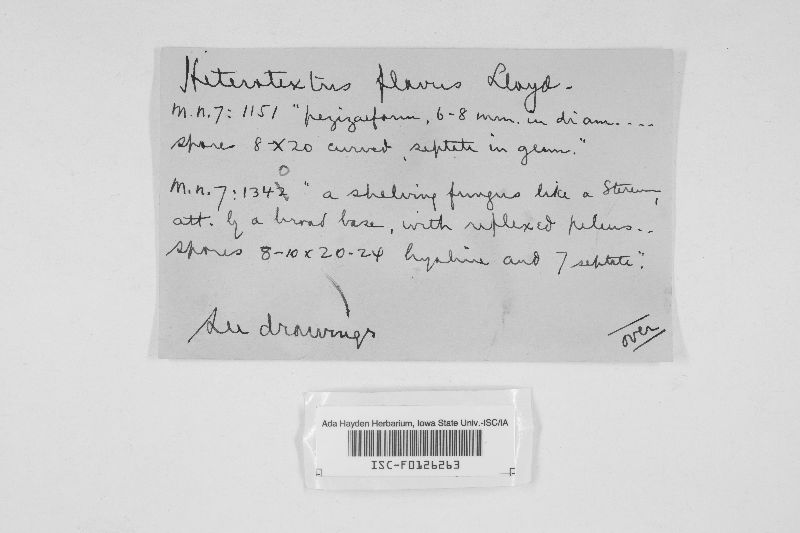 Heterotextus flavus Lloyd.
M.n.7: 1151 "pezizaeform, 6-8 mm. in diam....
spores 8 X 20 curved, septate in germ."
0
M.n.7: 1342 "a shelving fungus like a Stereum,
att. by a broad base, with reflexed pileus...
spores 8-10 x 20-24 hyaline and 7 septate".
See drawings
over
Ada Hayden Herbarium, Iowa State Univ.-ISC/IA
ISC-F0126263